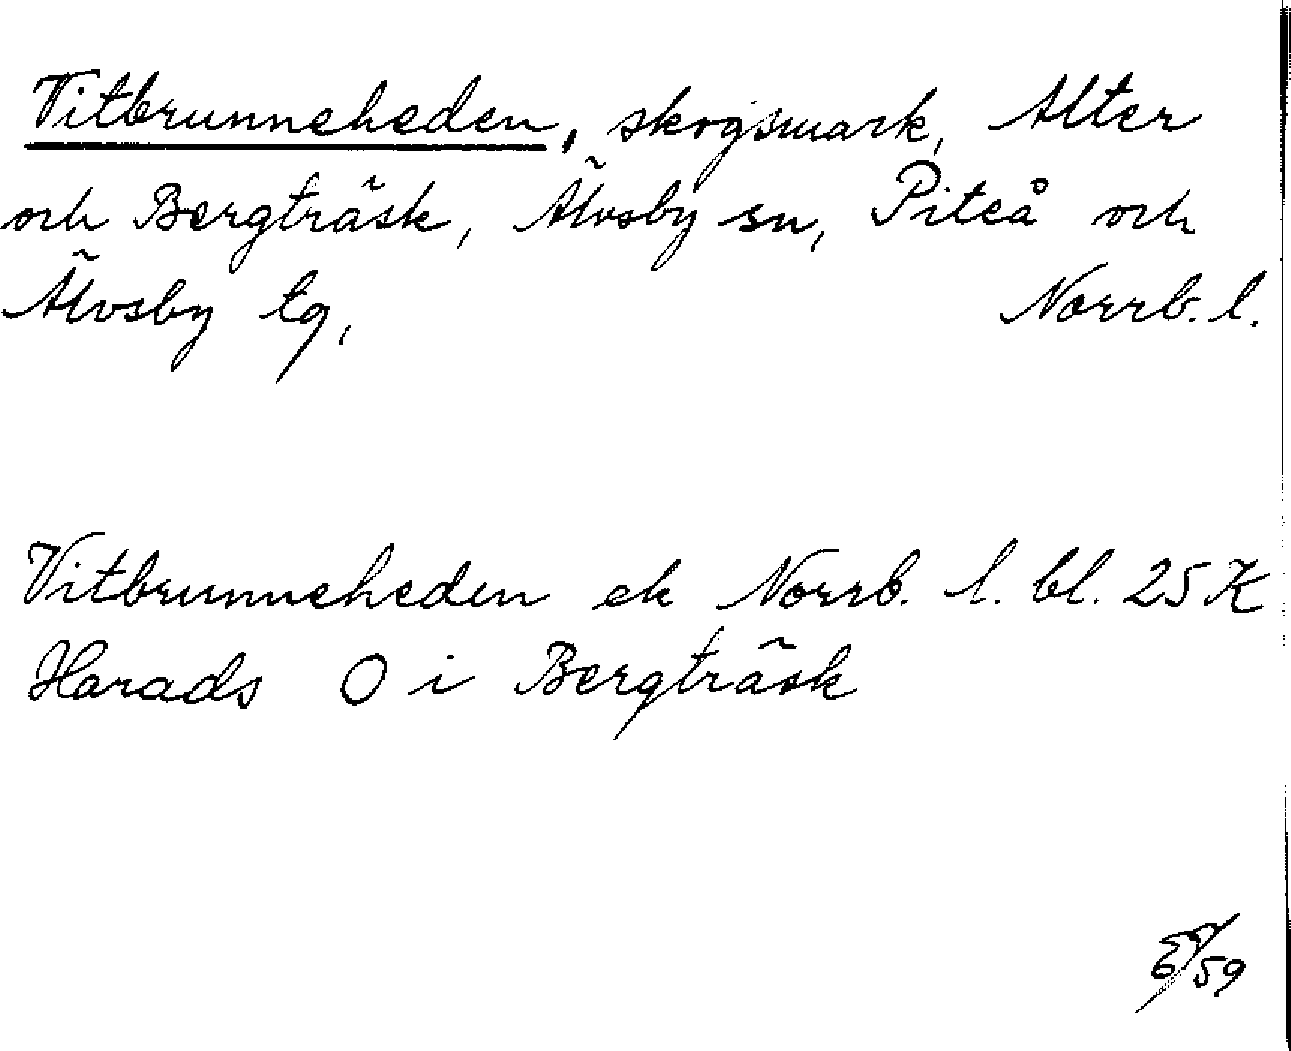 Vitbrunneheden, skogsmark, Alter
och Bergträsk, Älvsby sn, Piteå och
Älvsby tg, Norrb. l.
Vitbrunneheden ek Norrb. l. bl. 25 K
Harads O i Bergträsk
59